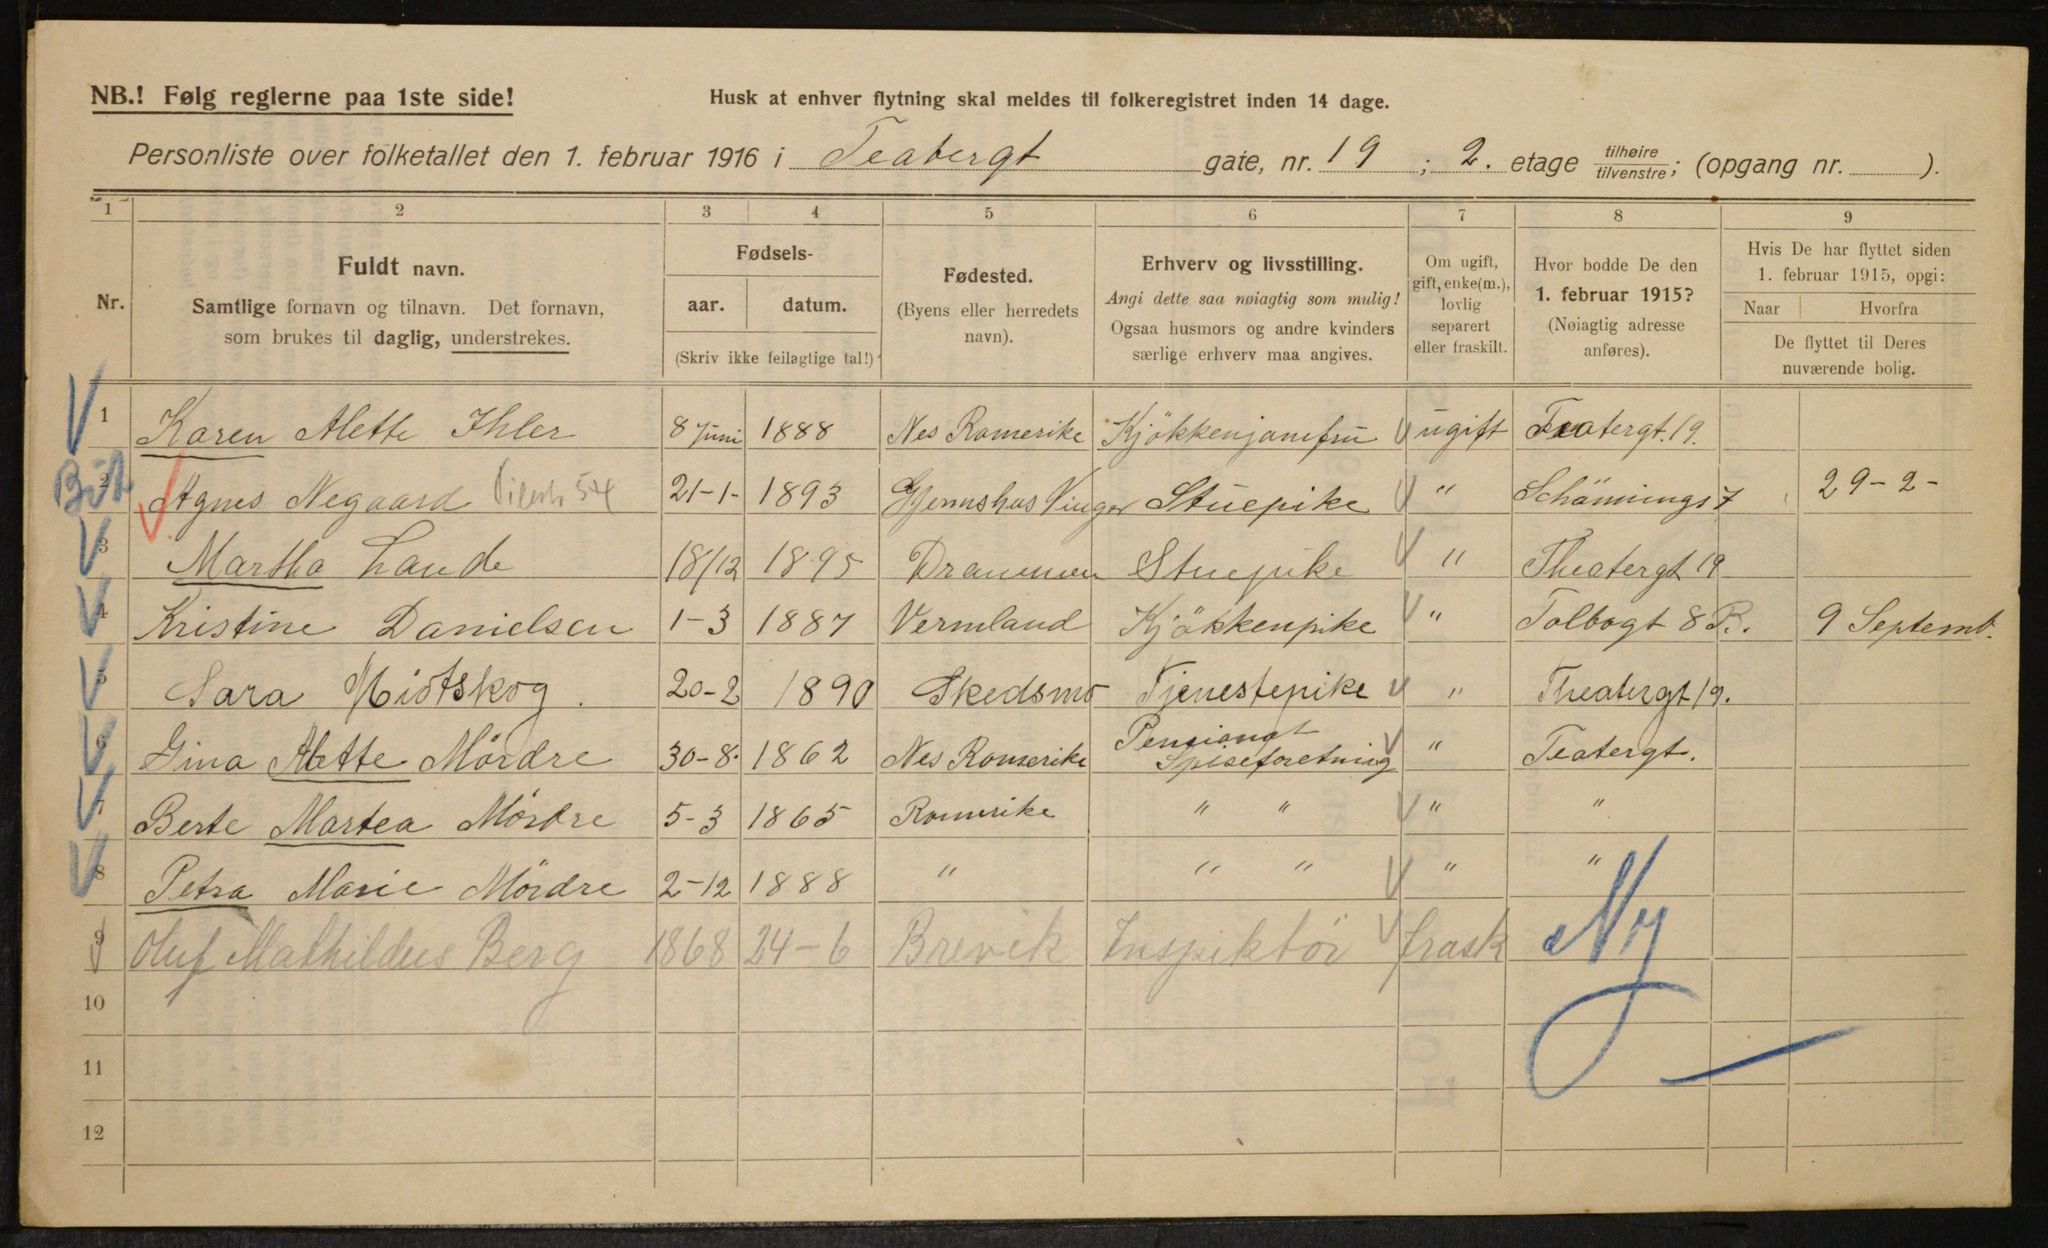 NB.! Følg reglerne paa 1ste side!
Husk at enhver flytning skal meldes til folkeregistret inden 14 dage.
Personliste over folketallet den 1. februar 1916 i Teatergt gate, nr. 19 ; 2. etage tilhøire/tilvenstre; (opgang nr. ).
1 2 3 4 5 6 7 8 9
Nr.
Fuldt navn.
Samtlige fornavn og tilnavn. Det fornavn,
som brukes til daglig, understrekes.
Fødsels-
aar. datum.
(Skriv ikke feilagtige tal!)
Fødested.
(Byens eller herredets
navn).
Erhverv og livsstilling.
Angi dette saa nøiagtig som mulig!
Ogsaa husmors og andre kvinders
særlige erhverv maa angives.
Om ugift,
gift, enke(m.),
lovlig
separert
eller fraskilt.
Hvor bodde De den
1. februar 1915?
(Nøiagtig adresse
anføres).
Hvis De har flyttet siden
1. februar 1915, opgi:
Naar Hvorfra
De flyttet til Deres
nuværende bolig.
1 Karen Alette Ihler 8 Juni 1888 Nes Romerike Kjökkenjomfru ugift Teatergt. 19.
2 Agnes Negaard 54 21-1- 1893 Vinger Stuepike " Schännings 7 29-2-
3 Martha Lande 18/12 1895 Drammen Stuepike " Theatergt 19
4 Kristine Danielsen 1-3 1887 Vermland Kjökkenpike " Tolbogt 8 B. 9 Septemb.
5 Sara Miotskog. 20-2 1890 Skedsmo Tjenestepike " Theatergt 19.
6 Gina Alette Mördre 30-8. 1862 Nes Romerike Pensionat Spiseforetning " Teatergt.
7 Berte Martea Mördre 5-3 1865 Romerike " " " "
8 Petra Marie Mördre 2-12 1888 " " " " "
9 Oluf Mathildus Berg 1868 24-6 Brevik Inspektör frask Ny
10
11
12